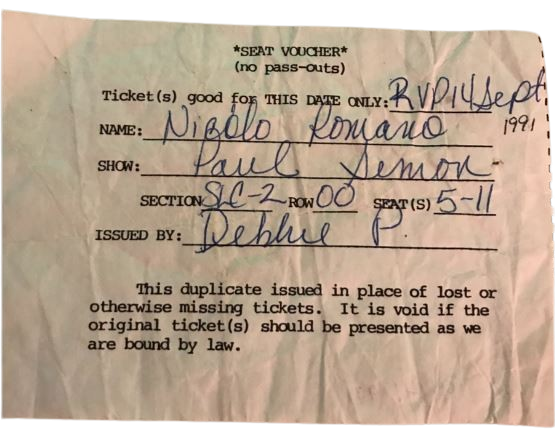 *SEAT VOUCHER*
(no pass-outs)
Ticket(s) good for THIS DATE ONLY: RVP14Sept
1991
NAME: Nicolo Romano
SHOW: Paul Semon
SECTION SLC-2 ROW 00 SEAT(S) 5-11
ISSUED BY: Debbie P.
This duplicate issued in place of lost or
otherwise missing tickets. It is void if the
original ticket(s) should be presented as we
are bound by law.